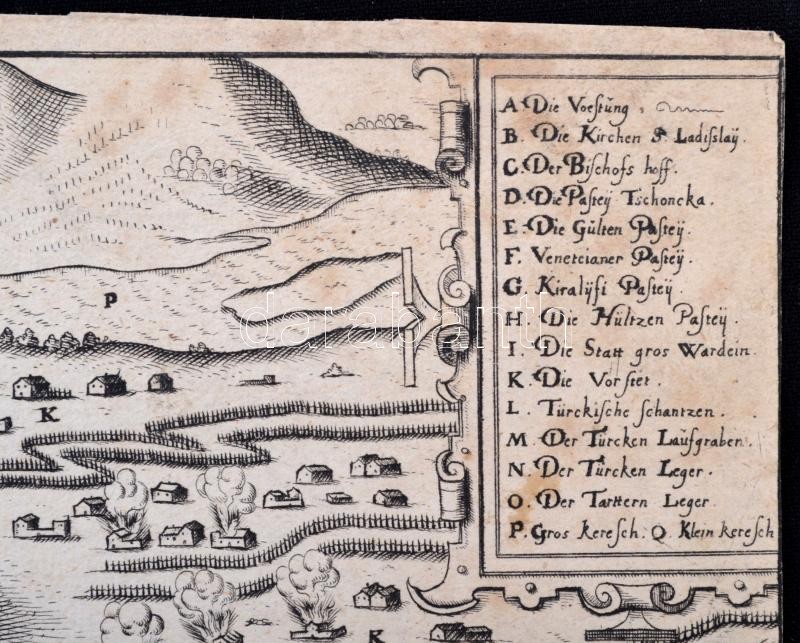 A. Die Voeſtŭng.
B. Die Kirchen S. Ladiſslaÿ.
C. Der Biſchofs hoff.
D. Die Paſteÿ Tschoncka.
E. Die Gŭlten Paſteÿ.
F. Venetcianer Paſteÿ.
G. Kiralÿſi Paſteÿ
H. Die Hŭltzen Paſteÿ.
I. Die Statt gros Wardein.
K. Die Vorſtet.
L. Tŭrckiſche ſchantzen.
M. Der Tŭrcken Laufsgraben.
N. Der Tŭrcken Leger.
O. Der Tarttern Leger
P. Gros kereſch. Q. Klein kereſch
P
K
K
darabanth